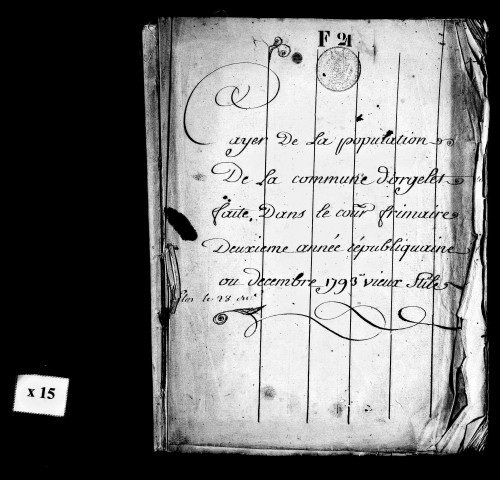 F 21
Cayer De La population
De La commune dorgelet
faite, Dans le cour frimaire
Deuxieme année républiquaine
ou decembre 1793 vieux Stile
le 28
x 15